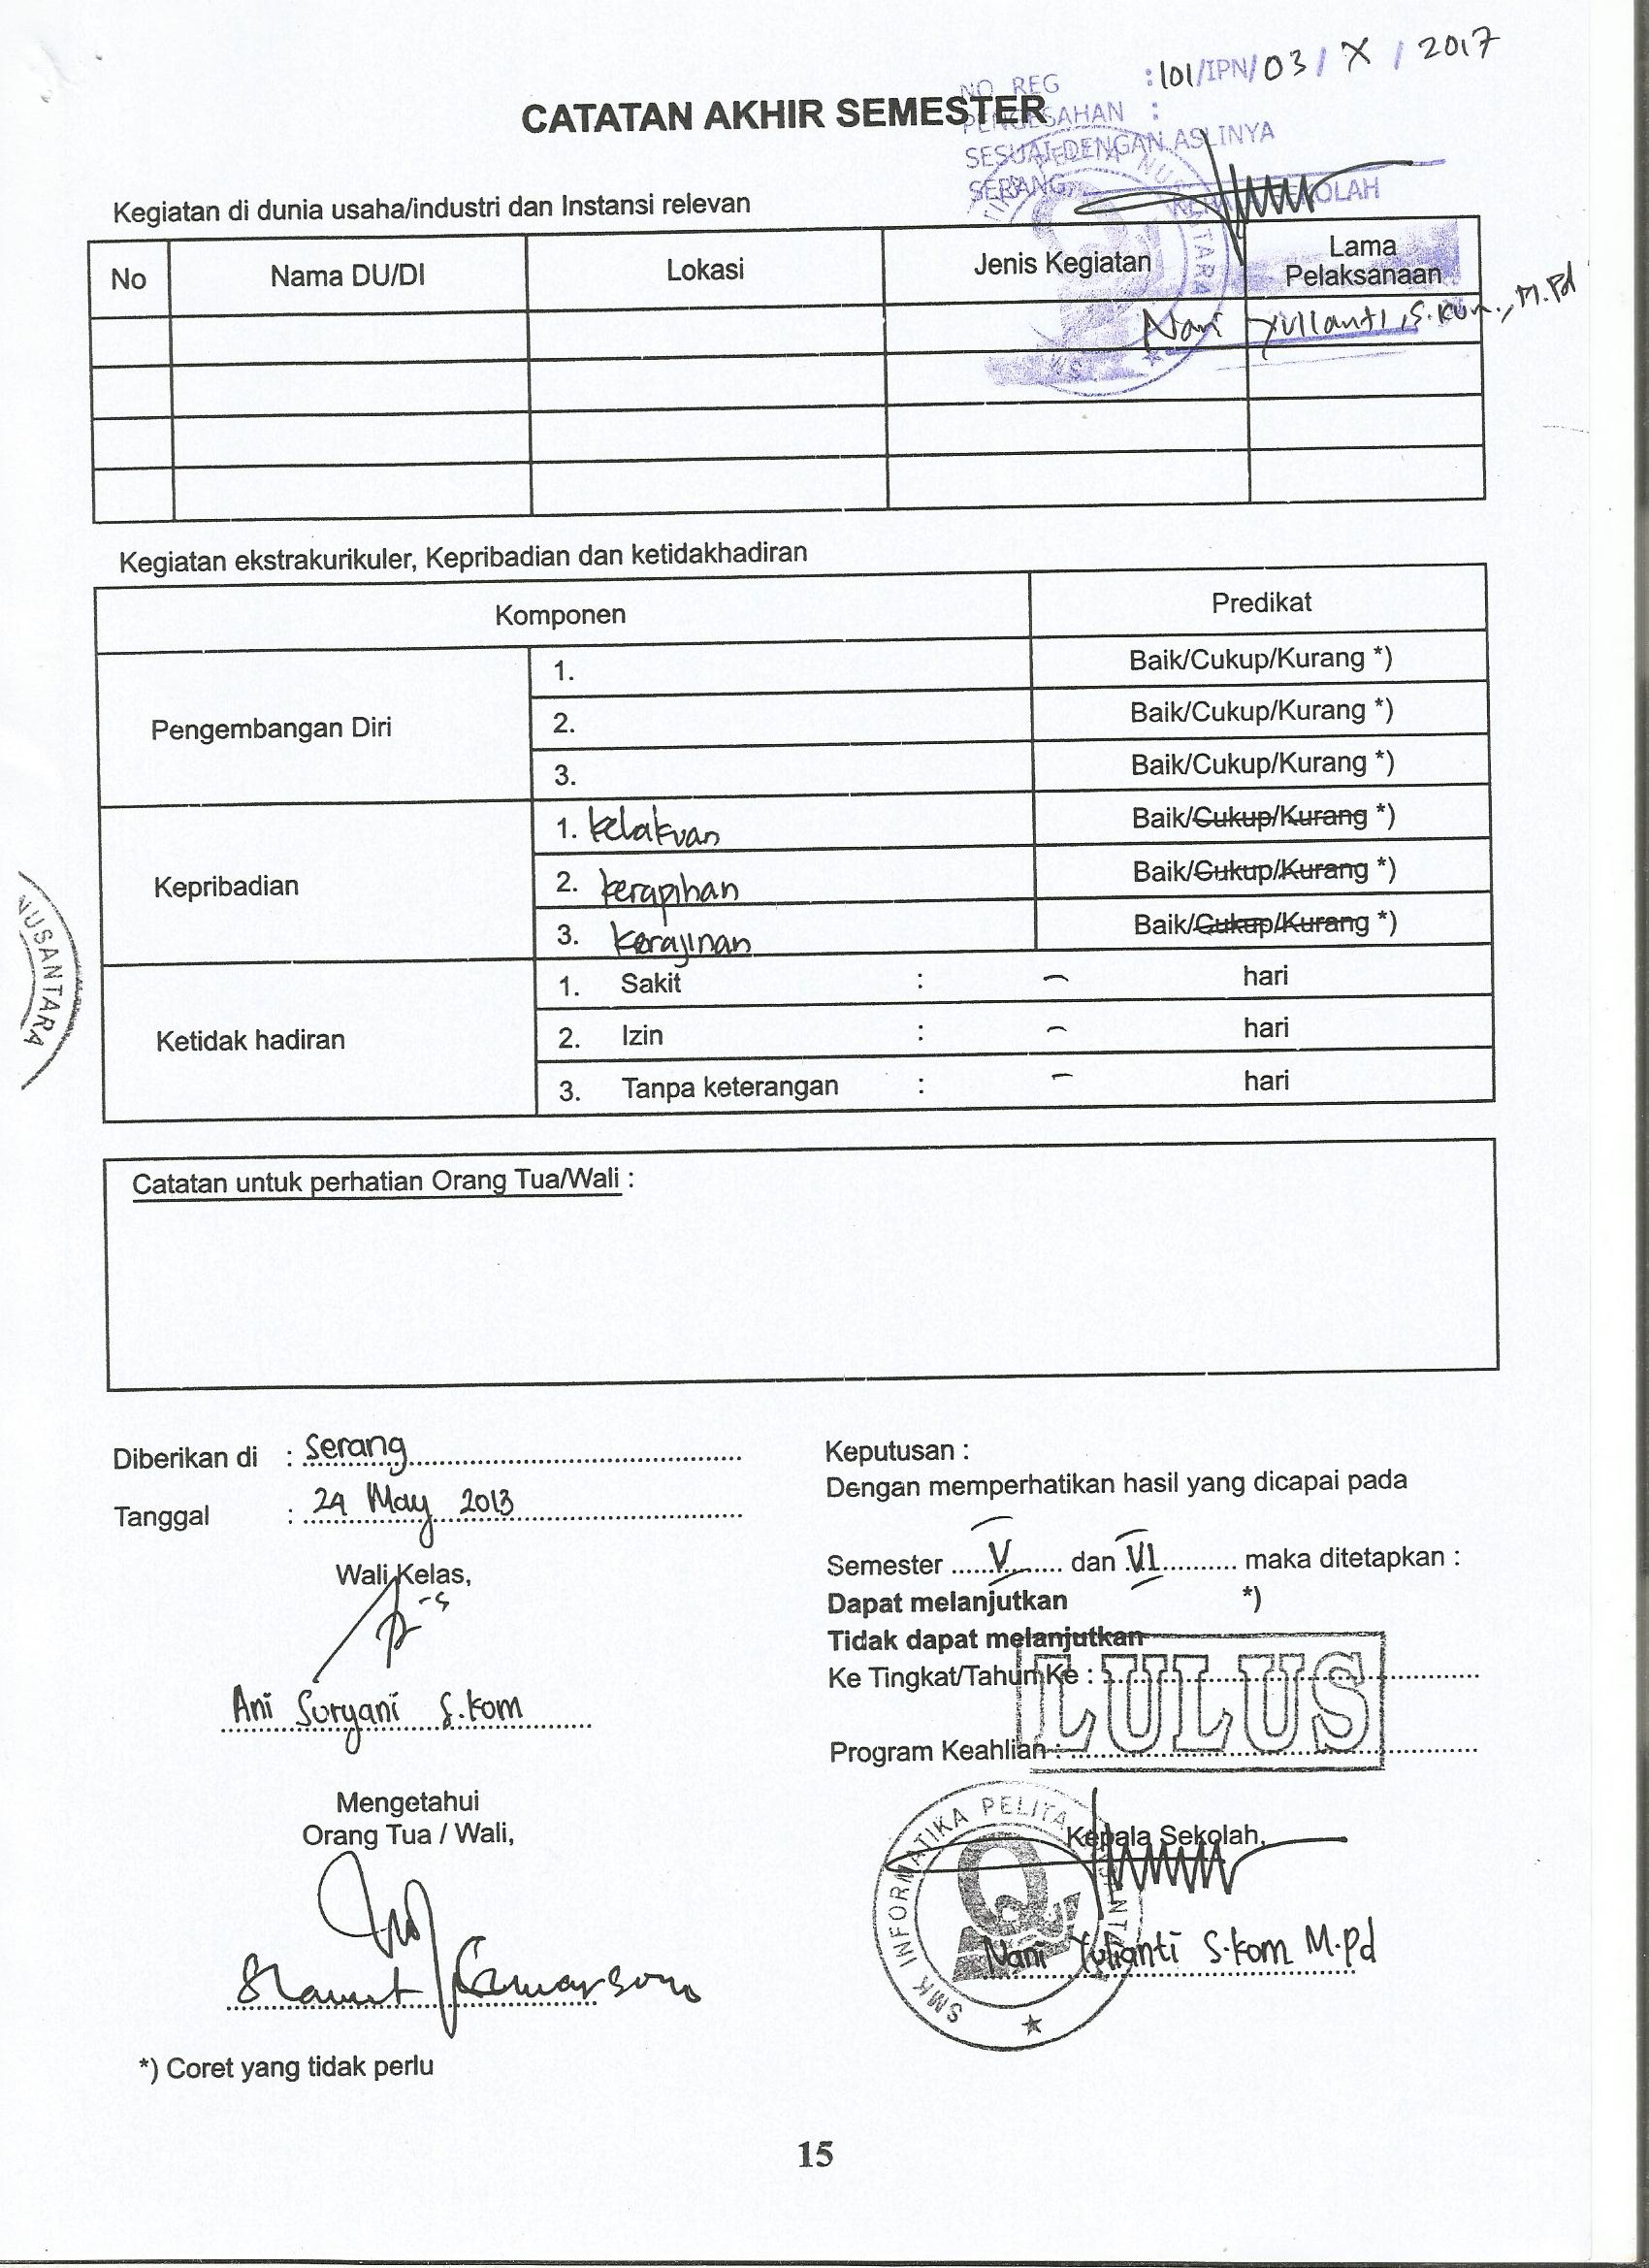 NO REG : 101/IPN/03/X/2017
PENGESAHAN :
SESUAI DENGAN ASLINYA
SERANG
KEPALA SEKOLAH
CATATAN AKHIR SEMESTER
Kegiatan di dunia usaha/industri dan Instansi relevan
No Nama DU/DI Lokasi Jenis Kegiatan Lama Pelaksanaan
Nani Yulianti, S.Kom., M.Pd
Kegiatan ekstrakurikuler, Kepribadian dan ketidakhadiran
Komponen Predikat
Pengembangan Diri
1. Baik/Cukup/Kurang *)
2. Baik/Cukup/Kurang *)
3. Baik/Cukup/Kurang *)
Kepribadian
1. kelakuan Baik/Cukup/Kurang *)
2. kerapihan Baik/Cukup/Kurang *)
3. kerajinan Baik/Cukup/Kurang *)
Ketidak hadiran
1. Sakit : - hari
2. Izin : - hari
3. Tanpa keterangan : - hari
NUSANTARA
Catatan untuk perhatian Orang Tua/Wali :
Diberikan di : Serang
Tanggal : 24 May 2013
Wali Kelas,
Ani Suryani S.kom
Mengetahui
Orang Tua / Wali,
Slamet
*) Coret yang tidak perlu
Keputusan :
Dengan memperhatikan hasil yang dicapai pada
Semester V dan VI maka ditetapkan :
Dapat melanjutkan *)
Tidak dapat melanjutkan
Ke Tingkat/Tahun Ke :
LULUS
Program Keahlian :
Kepala Sekolah,
SMK INFORMATIKA PELITA NUSANTARA
Nani Yulianti S.kom M.Pd
15